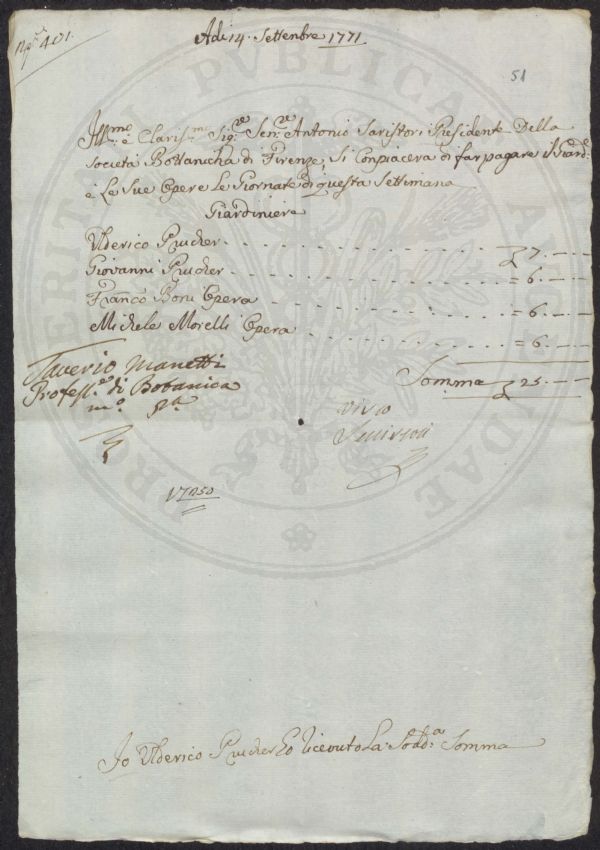 Nº 401.
Adi 14. Settembre 1771
51
Illmo. e Clarismo. Sigre. Senre. Antonio Saristori Presidente Della
Società Bottanicha di Firenze, Si Conpiacera di far pagare il Giard.e
e Le Sue Opere Le Giornate di questa Settimana
Giardiniere
Ulderico Prucher . . . . . . . . £ 7. --
Giovanni Prucher . . . . . . . . = 6. --
Franco Boni Opera . . . . . . . = 6. --
Michele Morelli Opera . . . . . = 6. --
Somma £ 25. --
Saverio Manetti
Professre. di Botanica
mo. pa.
Visto
Serristori
PROSPERITATI PVBLICAE AVGENDAE
Io Ulderico Prucher Ho riceuto La Sodda. Somma